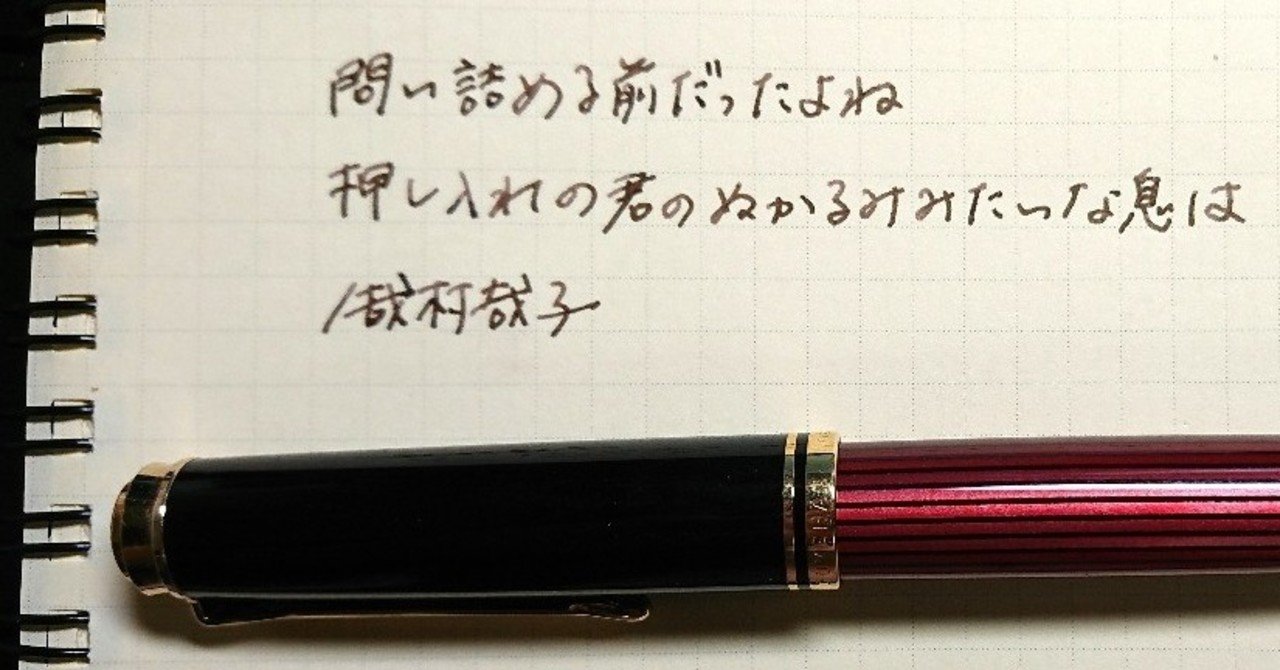 問い詰める前だったよね
押し入れの君のぬかるみみたいな息は
/哉村哉子